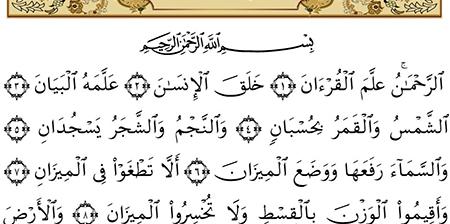 بِسْمِ اللَّهِ الرَّحْمَٰنِ الرَّحِيمِ
الرَّحْمَٰنُ ۝١ عَلَّمَ الْقُرْءَانَ ۝٢ خَلَقَ الْإِنسَٰنَ ۝٣ عَلَّمَهُ الْبَيَانَ ۝٤
الشَّمْسُ وَالْقَمَرُ بِحُسْبَانٍ ۝٥ وَالنَّجْمُ وَالشَّجَرُ يَسْجُدَانِ ۝٦
وَالسَّمَآءَ رَفَعَهَا وَوَضَعَ الْمِيزَانَ ۝٧ أَلَّا تَطْغَوْا۟ فِى الْمِيزَانِ ۝٨
وَأَقِيمُوا۟ الْوَزْنَ بِالْقِسْطِ وَلَا تُخْسِرُوا۟ الْمِيزَانَ ۝٩ وَالْأَرْضَ